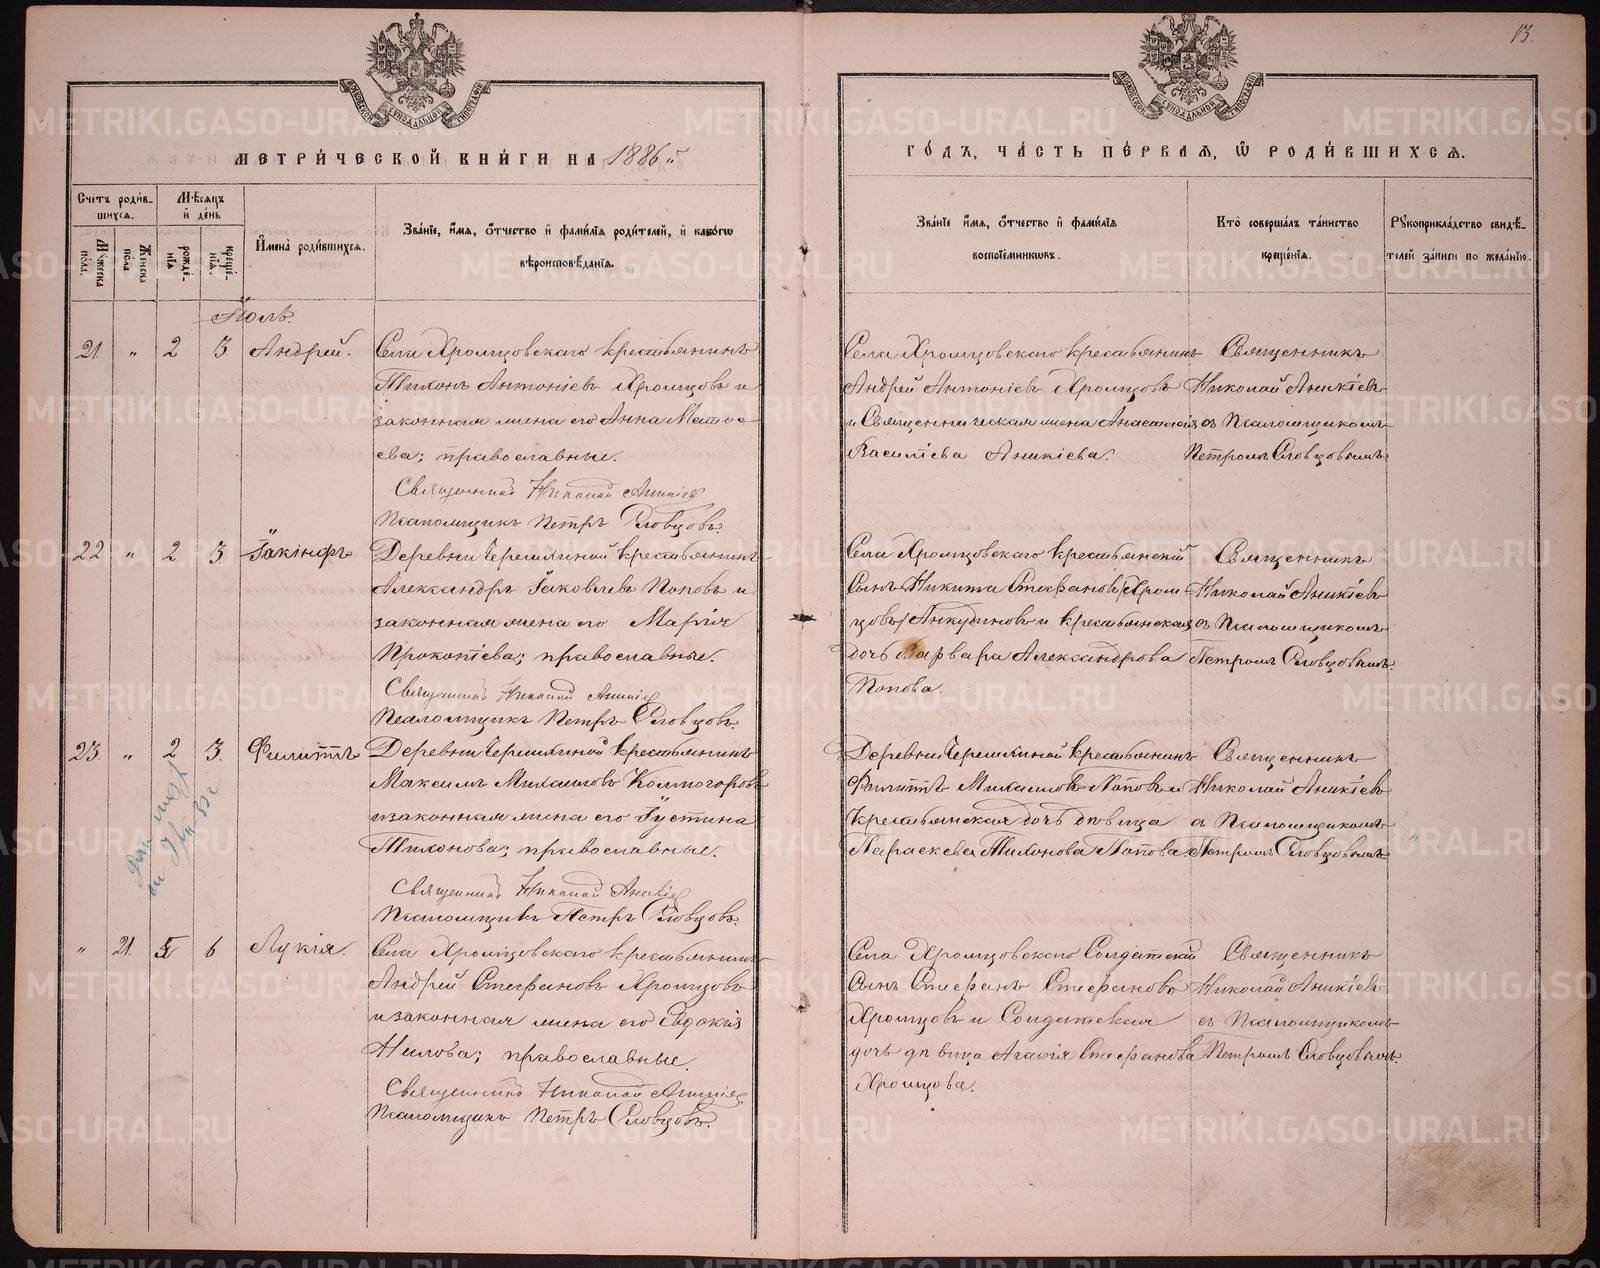 13.
МЕТРИЧЕСКОЙ КНИГИ НА 1886 г.
ГОДЪ, ЧАСТЬ ПЕРВАЯ, Ѿ РОДИВШИХСЯ.
Счетъ родившихся.
Мужеска пола.
Женска пола
Мѣсяцъ и день
рожденія
крещенія.
Имена родившихся.
Званіе, имя, отчество и фамилія родителей, и какогѡ
вѣроисповѣданія.
Званіе имя, отчество и фамилія
воспріемникѡвъ.
Кто совершалъ таинство
крещенія.
Рукоприкладство свидѣтелей записи по желанію.
Іюль.
21. " 2 3 Андрей.
Села Хромцовскаго крестьянинъ
Тихонъ Антоніевъ Хромцовъ и
законная жена его Анна Матѳе-
ева; православные.
Священникъ Николай Аникіев
Псаломщикъ Петръ Словцовъ.
Села Хромцовскаго крестьянинъ
Андрей Антоніевъ Хромцовъ
и Священническая жена Анастасія
Василіева Аникіева.
Священникъ
Николай Аникіевъ
съ Псаломщикомъ
Петромъ Словцовымъ
22 " 2 3. Іакінфъ
Деревни Черемхиной крестьянинъ
Александръ Іаковлевъ Поповъ и
законная жена его Марія
Прокопіева; православные.
Священникъ Николай Аникіев
Псаломщикъ Петръ Словцовъ.
Села Хромцовскаго крестьянскій
сынъ Никита Стефановъ /Хром-
цовъ/ Анкудиновъ и крестьянская
дочь Варвара Александрова
Попова.
Священникъ
Николай Аникіевъ
съ Псаломщикомъ
Петромъ Словцовымъ.
23. " 2 3. Филиппъ
Деревни Черемхиной крестьянинъ
Максимъ Михаиловъ Колмогоровъ
и законная жена его Іустина
Тихонова; православные.
Священникъ Николай Аникіев
Псаломщикъ Петръ Словцовъ.
Деревни Черемхиной крестьянинъ
Филиппъ Михаиловъ Поповъ и
крестьянская дочь дѣвица
Параскева Тихонова Попова.
Священникъ
Николай Аникіевъ
съ Псаломщикомъ
Петромъ Словцовымъ
" 21. 5 6 Лукія.
Села Хромцовскаго крестьянинъ
Андрей Стефановъ Хромцовъ
и законная жена его Евдокія
Нилова; православные.
Священникъ Николай Аникіев
Псаломщикъ Петръ Словцовъ.
Села Хромцовскаго Солдатскій
Сынъ Стефанъ Стефановъ
Хромцовъ и Солдатская
дочь дѣвица Агафія Стефанова
Хромцова.
Священникъ
Николай Аникіевъ
съ Псаломщикомъ
Петромъ Словцовымъ.
METRIKI.GASO-URAL.RU